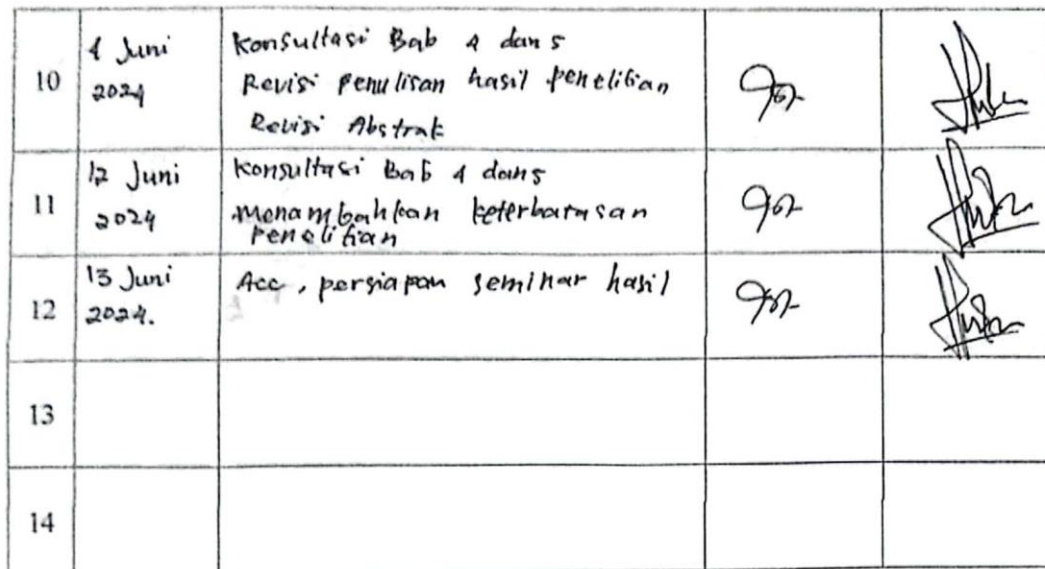 10
4 Juni
2024
Konsultasi Bab 4 dan 5
Revisi Penulisan hasil penelitian
Revisi Abstrak
11
12 Juni
2024
Konsultasi Bab 4 dan 5
Menambahkan keterbatasan
Penelitian
12
13 Juni
2024.
Acc, persiapan seminar hasil
13
14